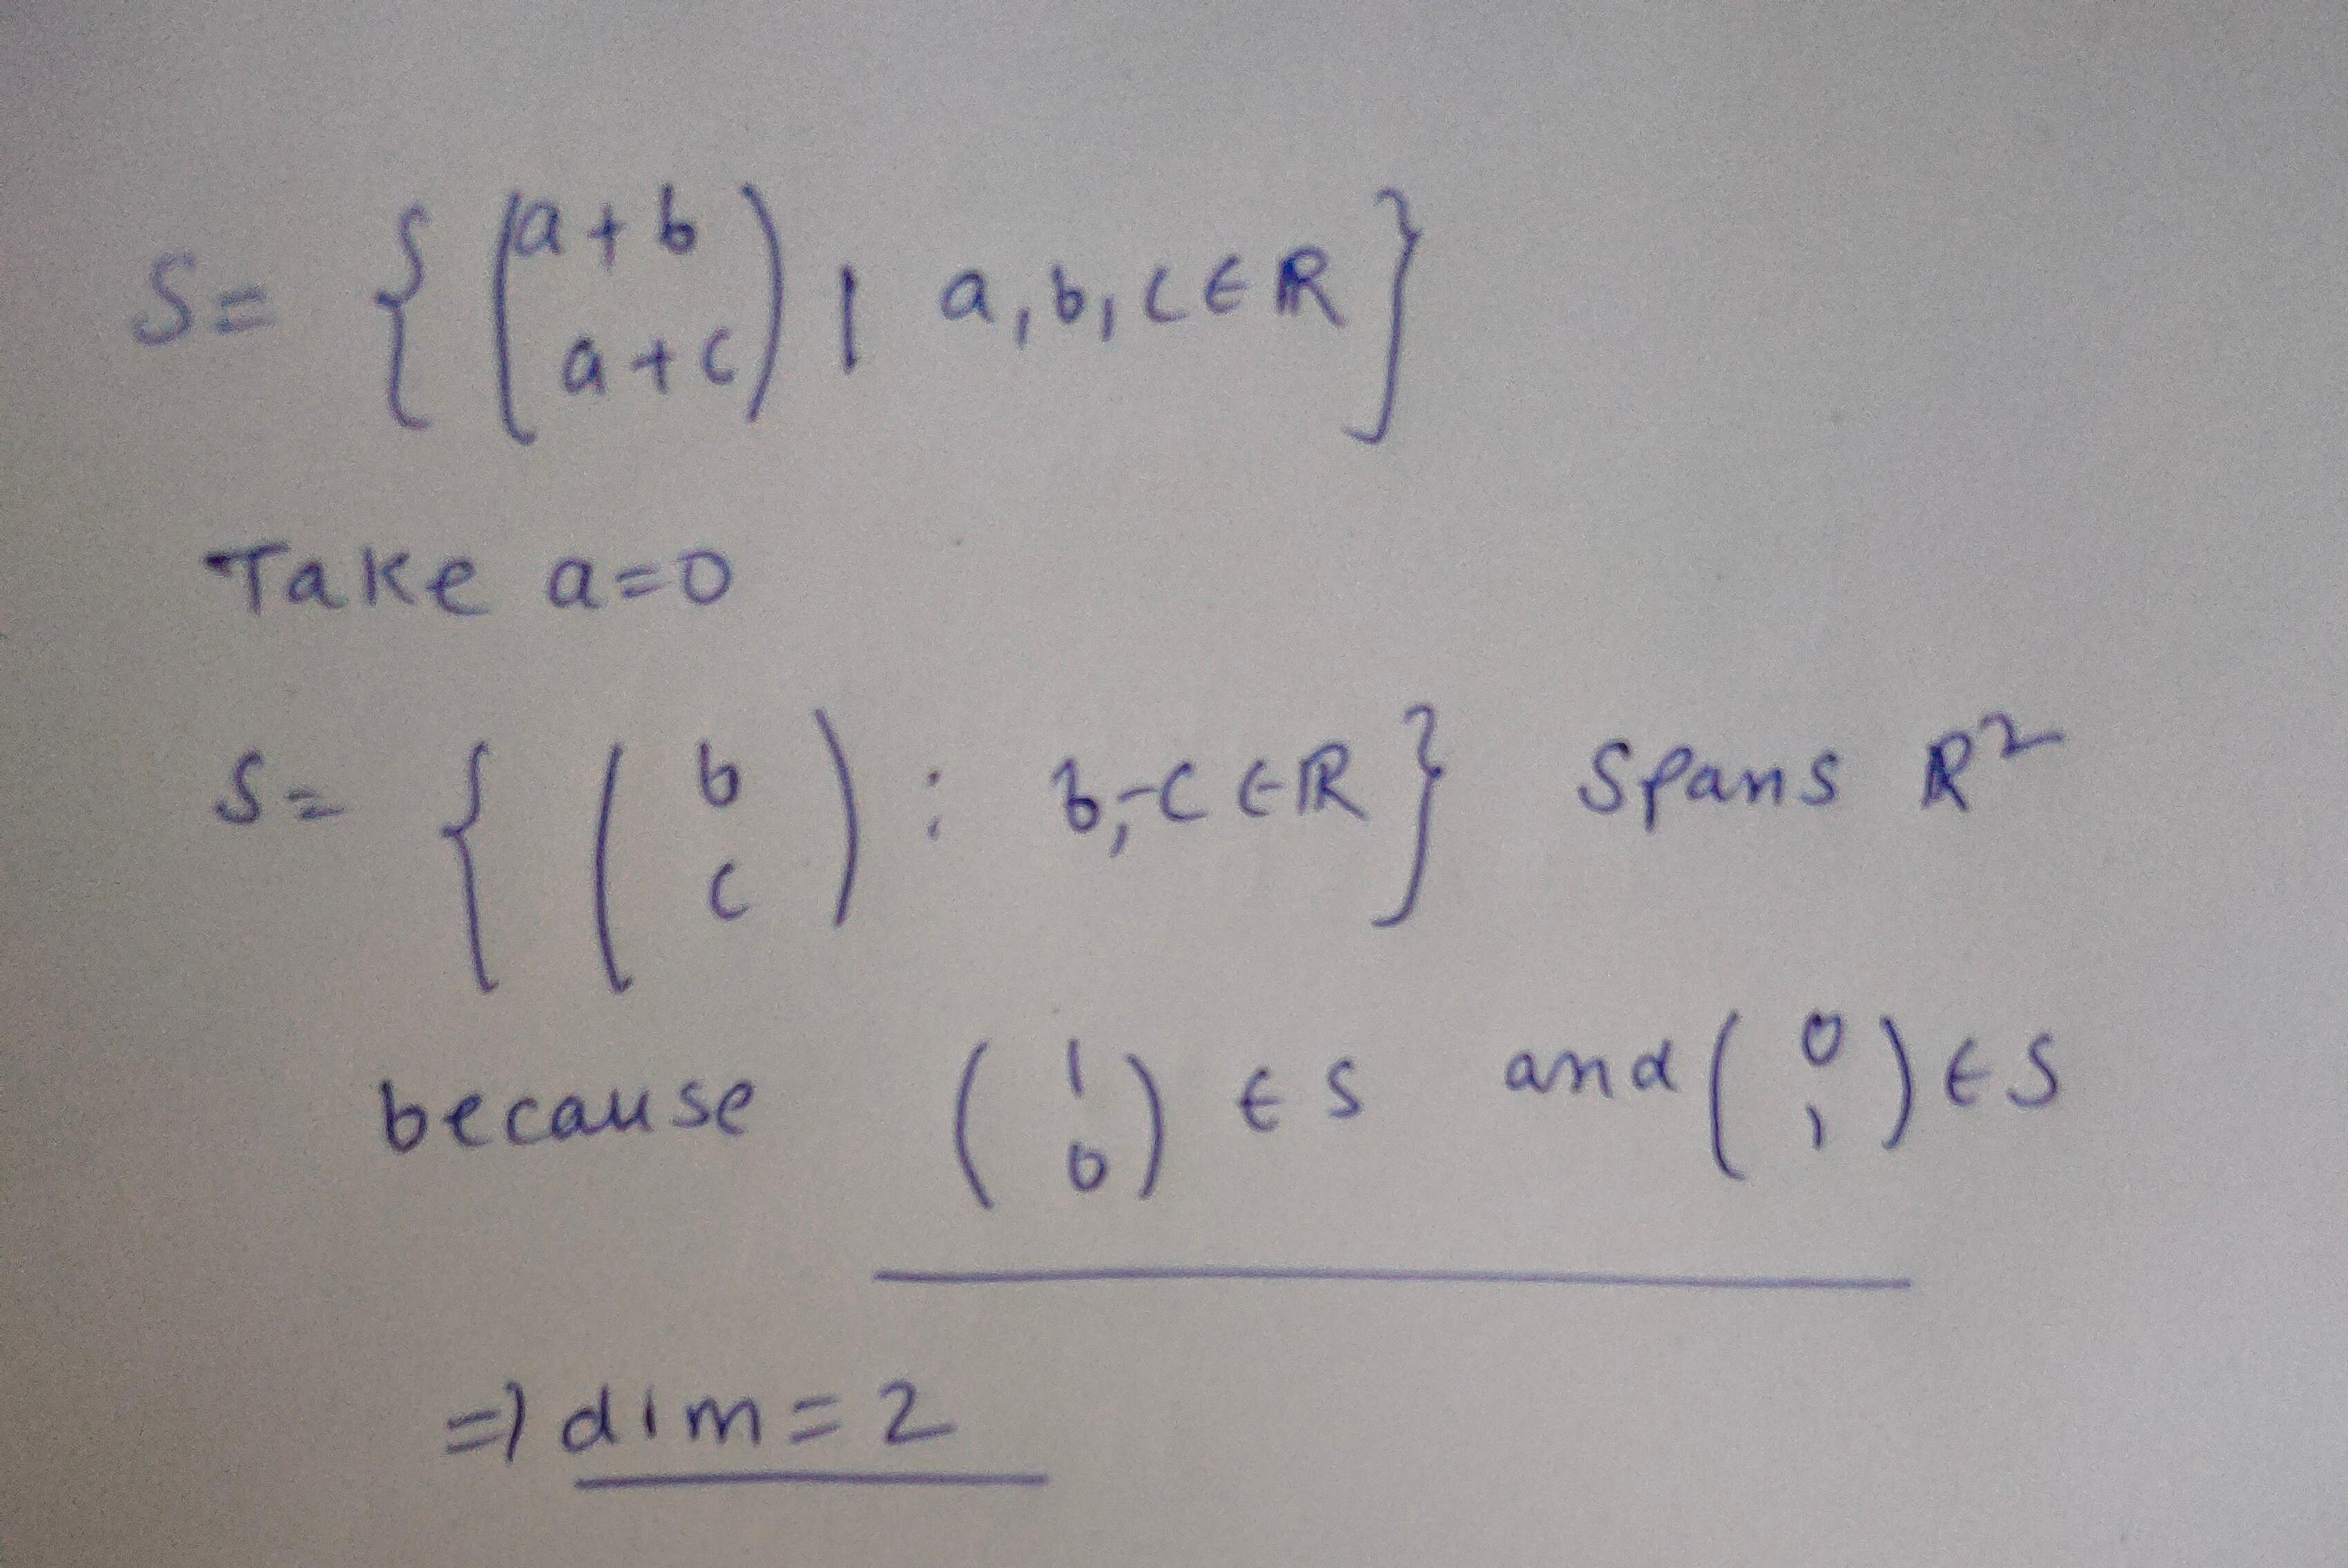 S = { ( a + b
a + c ) | a, b, c ∈ ℝ }
Take a = 0
S = { ( b
c ) : b, c ∈ ℝ } spans ℝ²
because ( 1
0 ) ∈ S and ( 0
1 ) ∈ S
⇒ dim = 2